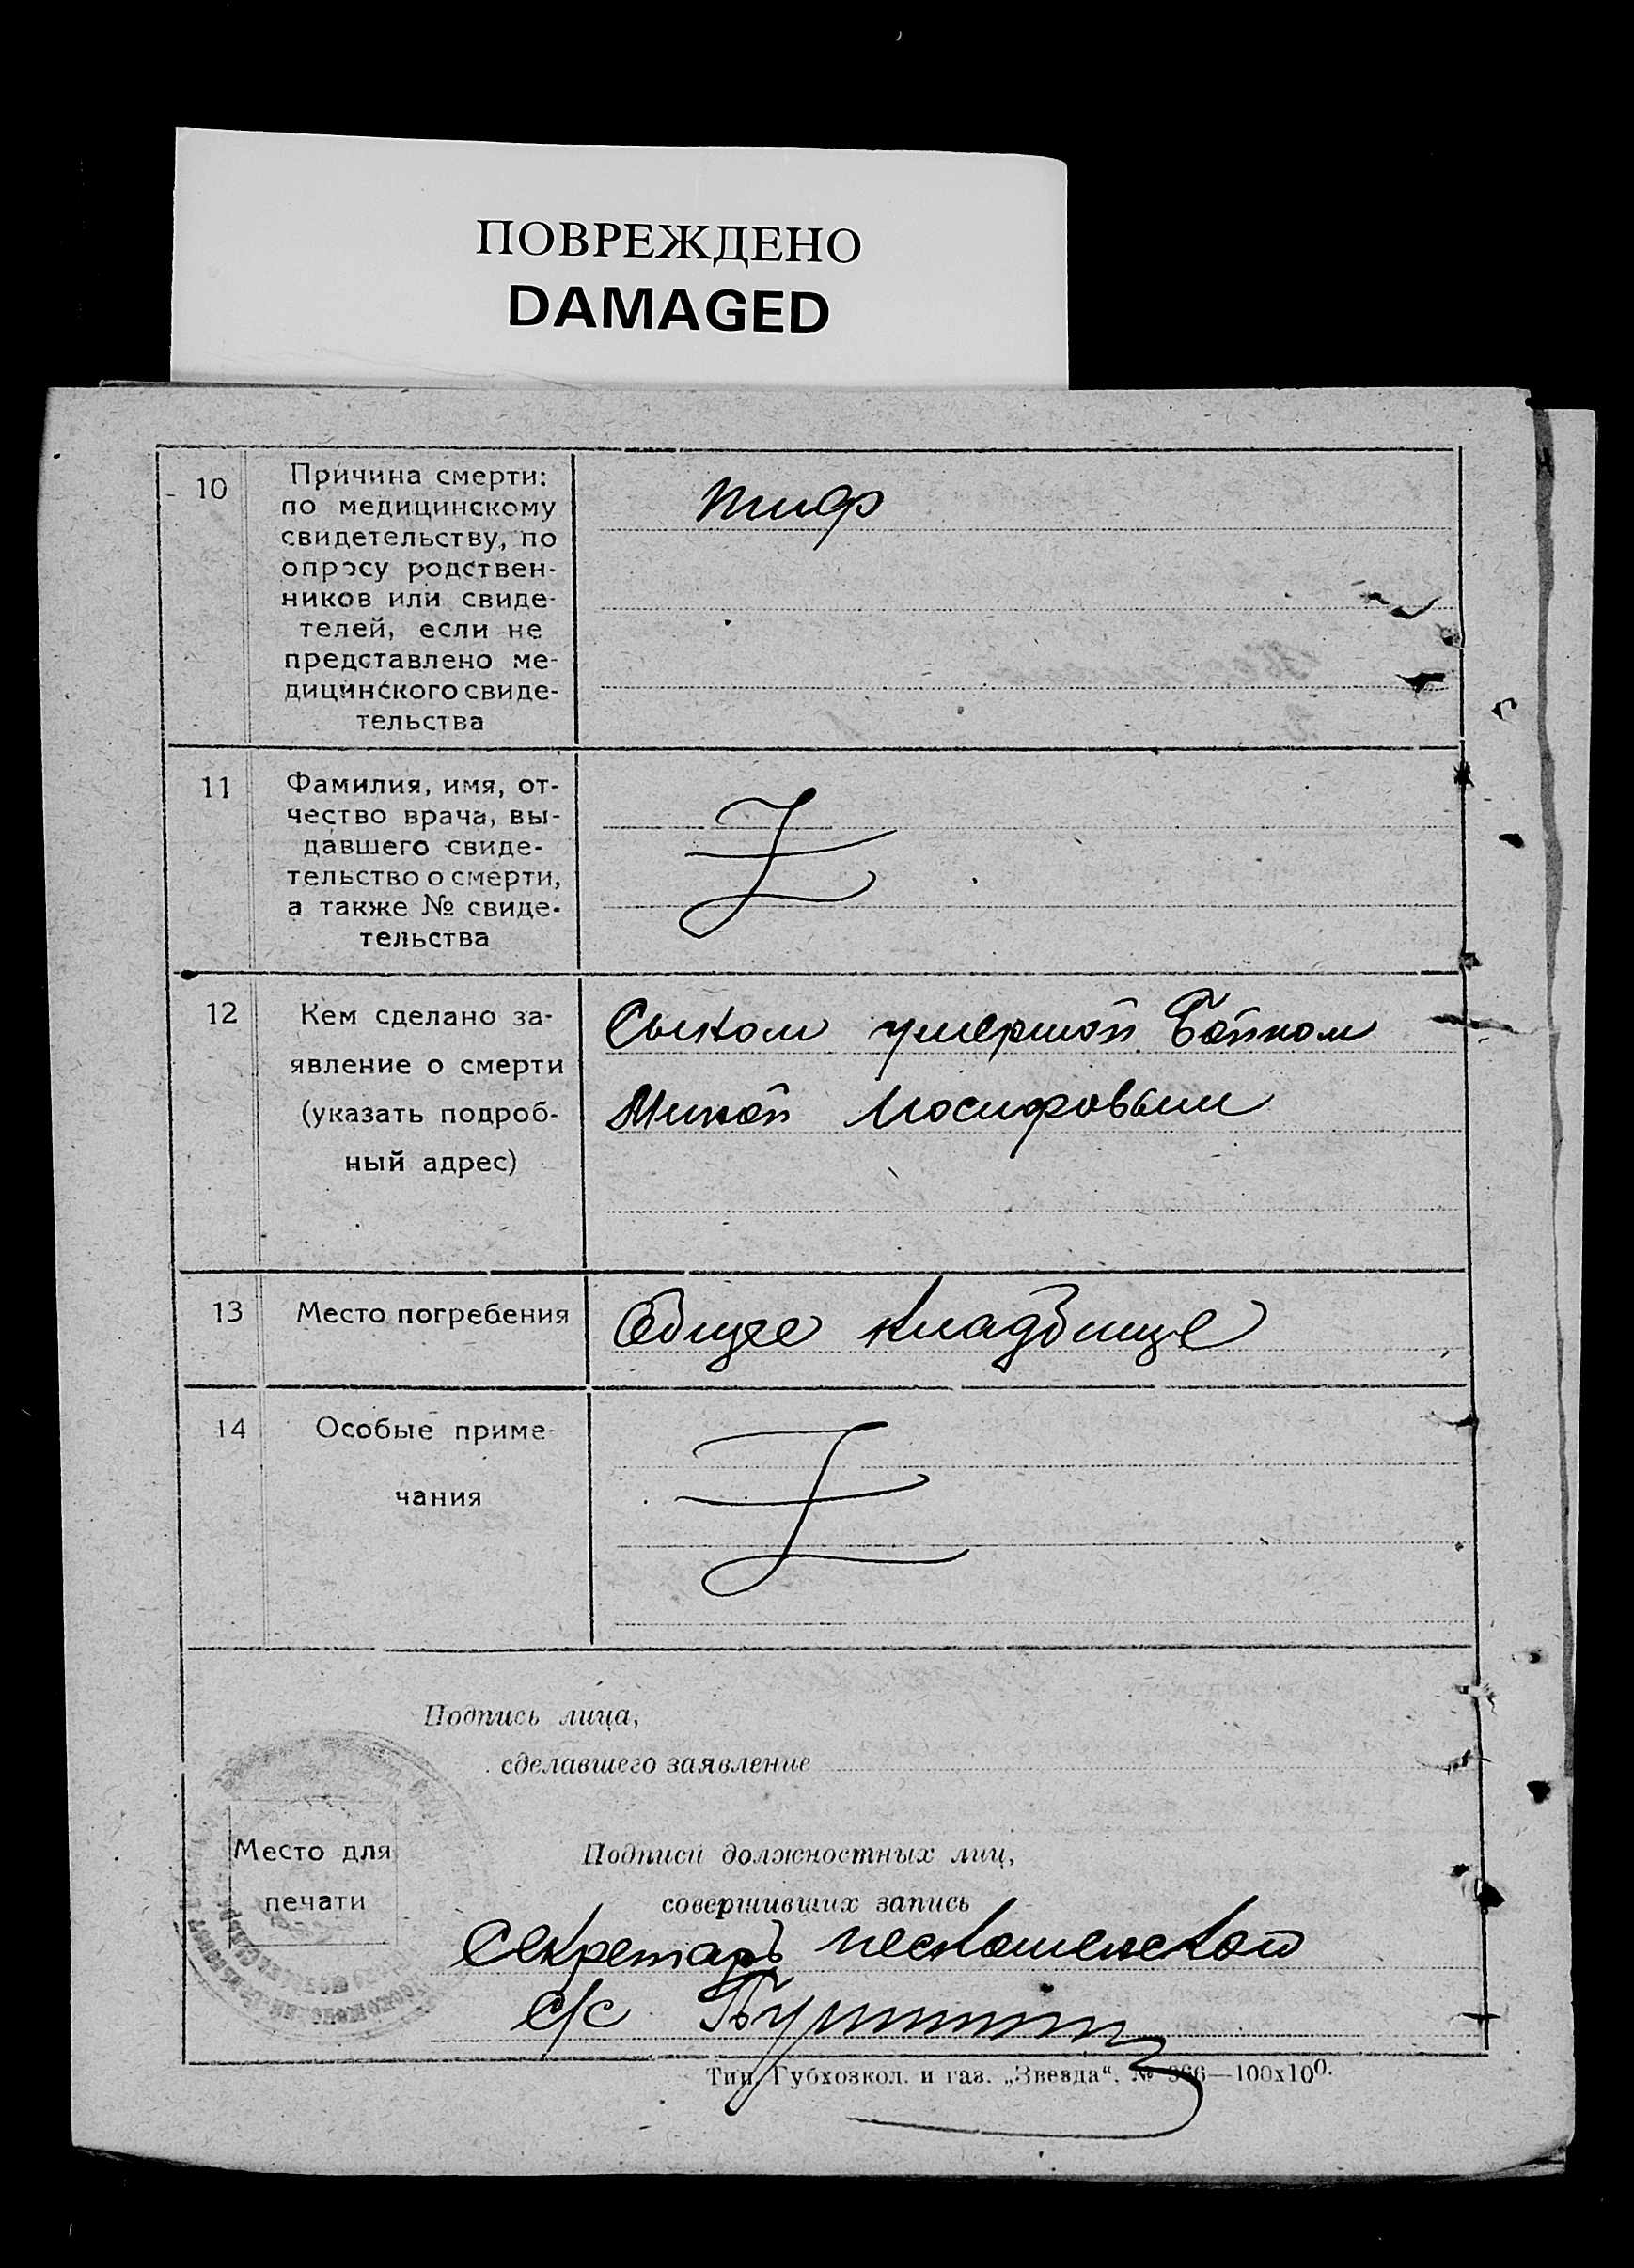 ПОВРЕЖДЕНО
DAMAGED
10
Причина смерти:
по медицинскому
свидетельству, по
опросу родствен-
ников или свиде-
телей, если не
представлено ме-
дицинского свиде-
тельства
тиф
11
Фамилия, имя, от-
чество врача, вы-
давшего свиде-
тельство о смерти,
а также № свиде-
тельства
12
Кем сделано за-
явление о смерти
(указать подроб-
ный адрес)
Сыном умершой Бойком
Миной Иосифовым
13
Место погребения
Общее кладбище
14
Особые приме-
чания
Подпись лица,
сделавшего заявление
Место для
печати
Подписи должностных лиц,
совершивших запись
Секретарь
с/с
Тип. Губхозкол. и газ. „Звезда“. № 966—100х100.